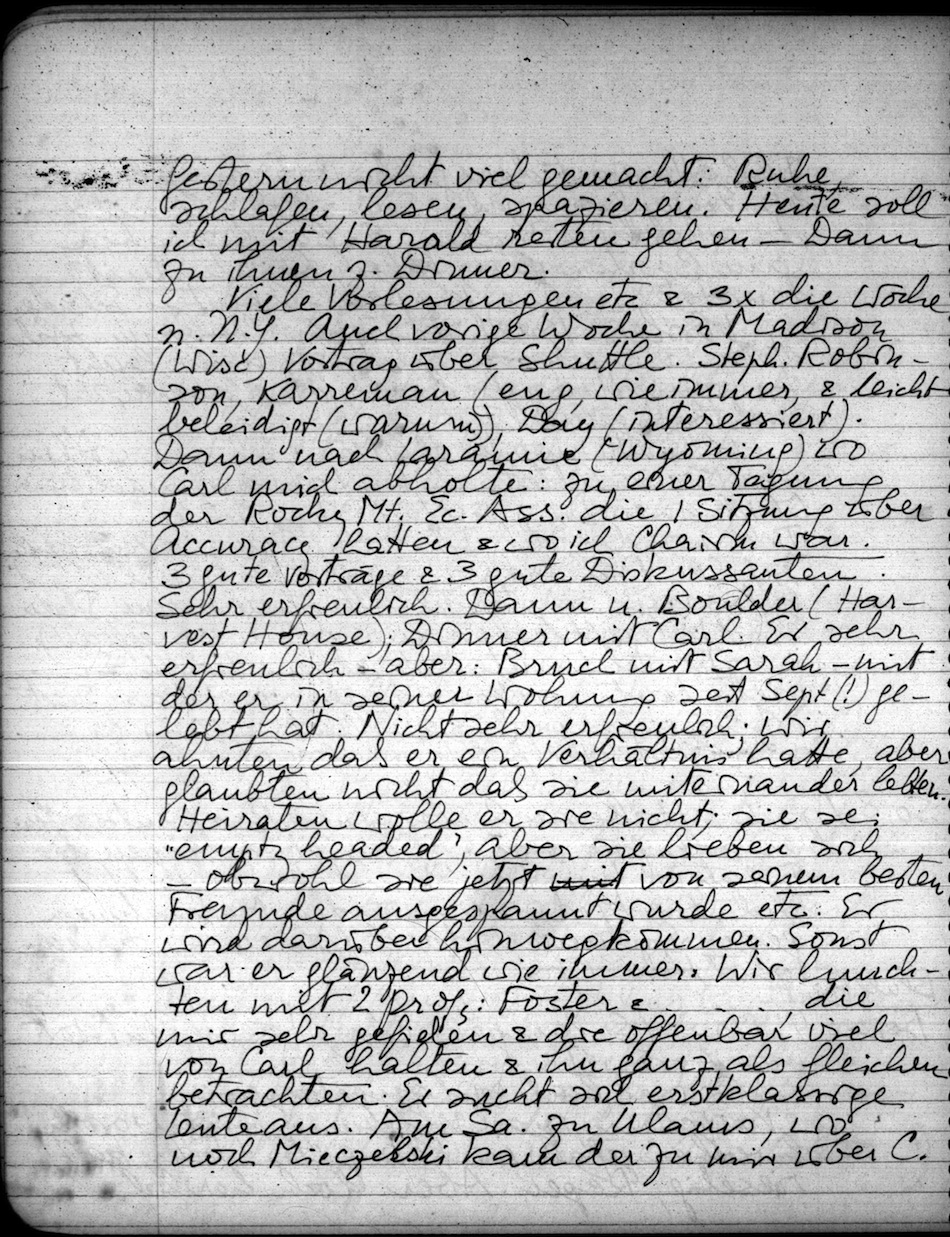 Gestern nicht viel gemacht: Ruhe,
schlafen, lesen, spazieren. Heute soll
ich mit Harold reiten gehen – Dann
zu ihnen z. Dinner.
Viele Vorlesungen etc & 3x die Woche
n. N.Y. Auch vorige Woche in Madison
(Wisc) Vortrag über Shuttle. Steph. Robin-
son, Karreman (eng, wie immer, & leicht
beleidigt (warum)), Day (interessiert).
Dann nach Laramie (Wyoming) wo
Carl mich abholte: zu einer Tagung
der Rocky Mt. Ec. Ass. die 1 Sitzung über
Accuracy hatten & wo ich Chairm war.
3 gute Vorträge & 3 gute Diskussanten.
Sehr erfreulich. Dann n. Boulder (Har-
vest House); Dinner mit Carl. Er sehr
erfreulich – aber: Bruch mit Sarah – mit
der er in seiner Wohnung seit Sept (!) ge-
lebt hat. Nicht sehr erfreulich; wir
ahnten das er ein Verhältnis hatte, aber
glaubten nicht das sie miteinander lebten.
Heiraten wolle er sie nicht; sie sei
"empty headed", aber sie lieben sich
– obwohl sie jetzt mit von seinem besten
Freunde ausgespannt wurde etc. Er
wird darüber hinwegkommen. Sonst
war er glänzend wie immer. Wir lunch-
ten mit 2 Prof.: Foster & . . . . , die
mir sehr gefielen & die offenbar viel
von Carl halten & ihn ganz als gleichen
betrachten. Er sucht sich erstklassige
Leute aus. Am Sa. zu Ulams, wo
noch Mieczelski kam der zu mir über C.